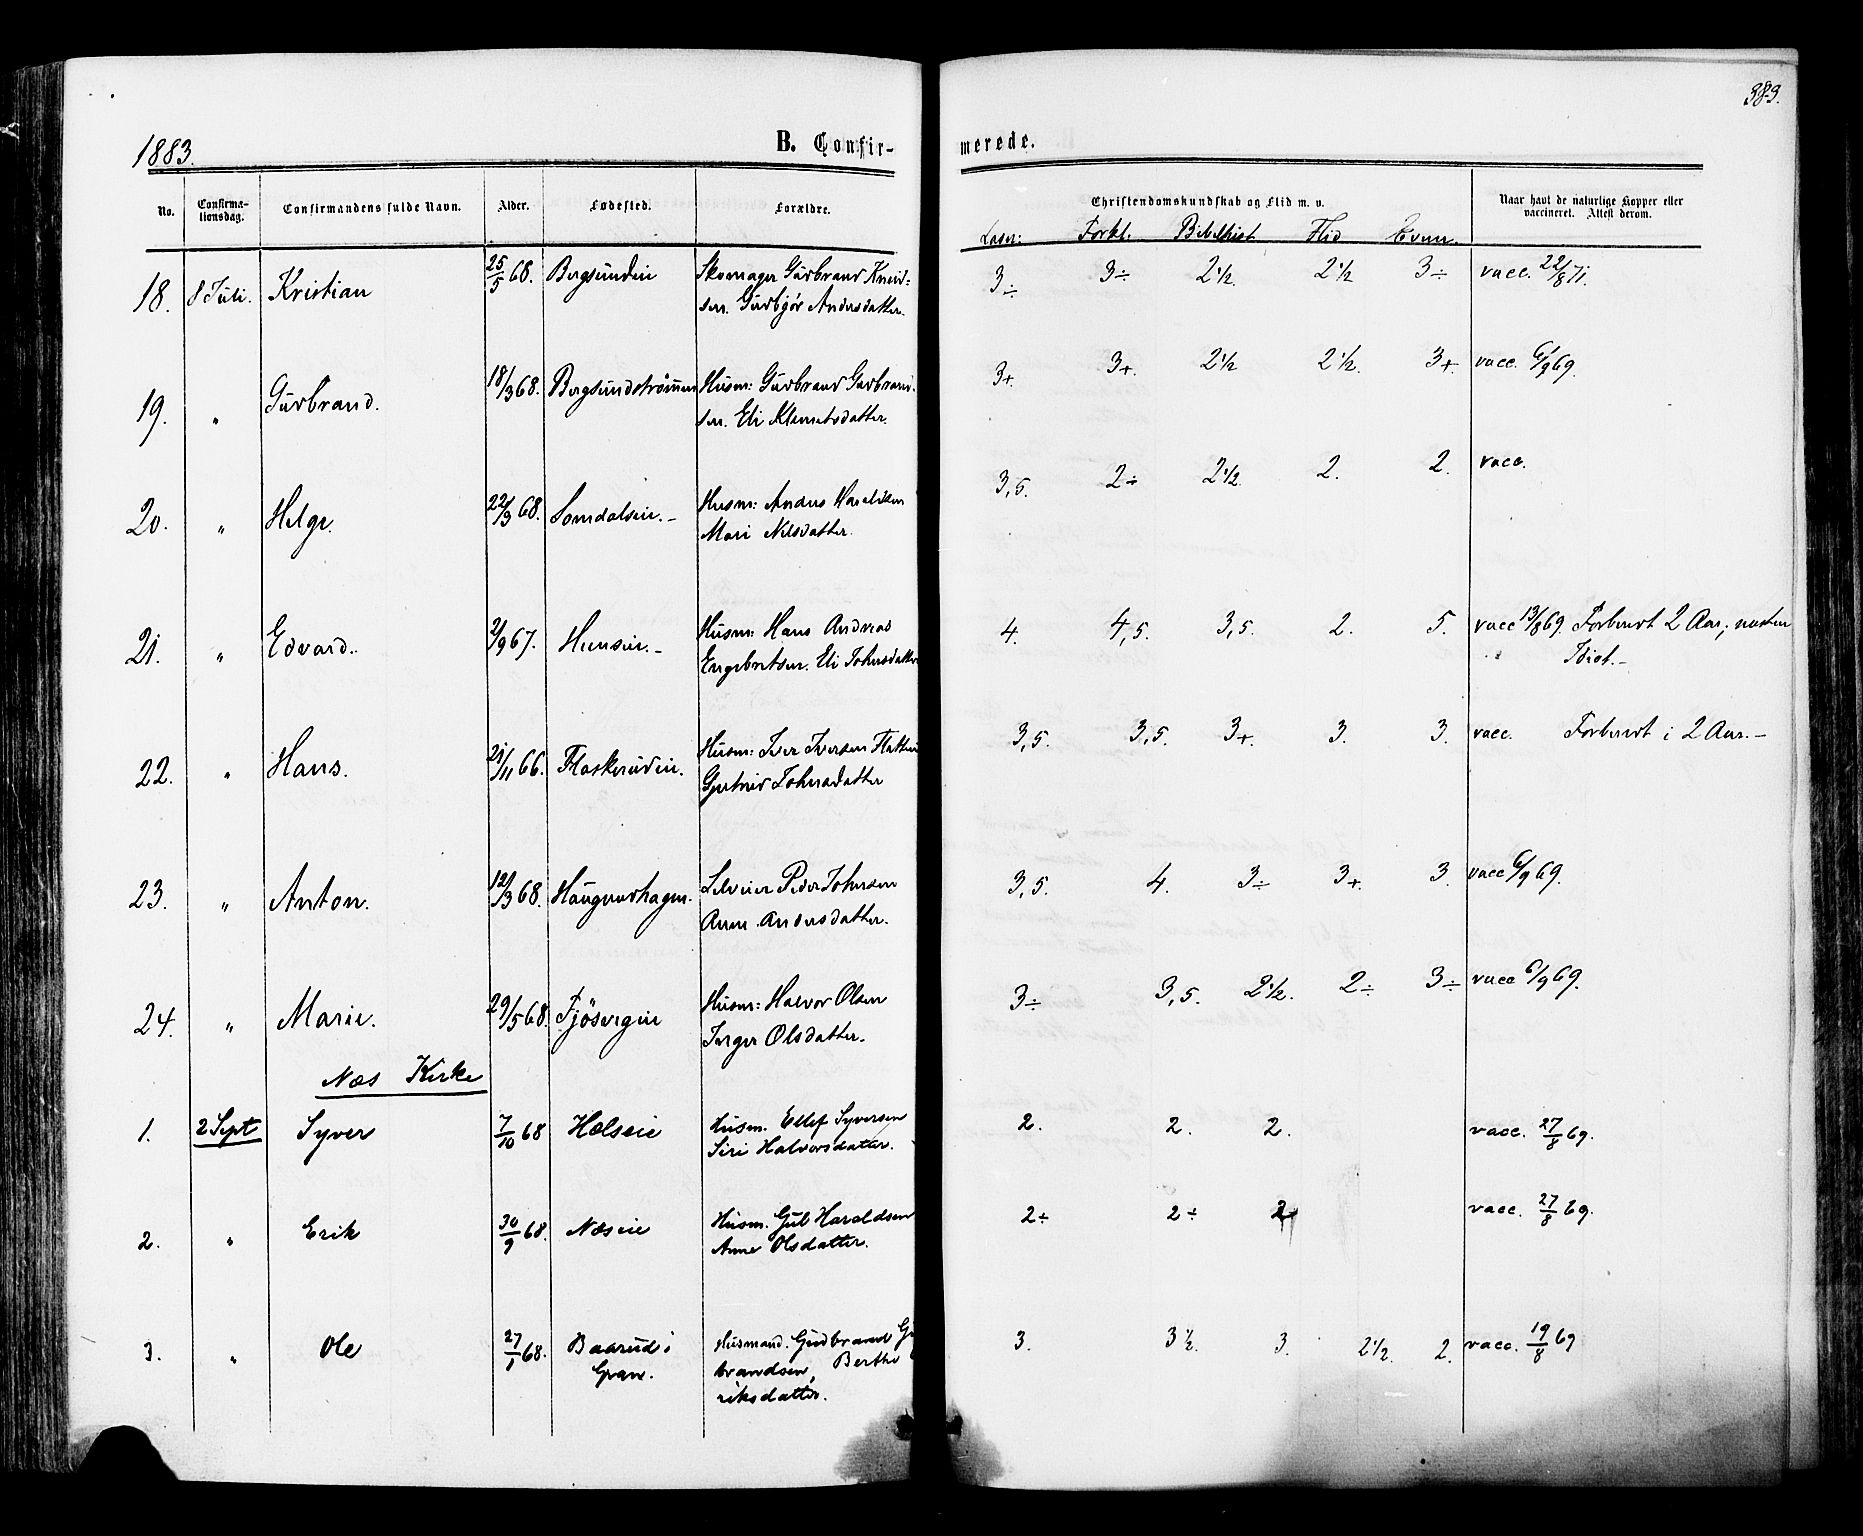 383.
1883.
B. Confir-
merede.
No.
Confirma-
tionsdag.
Confirmandens fulde Navn.
Alder.
Fødested.
Forældre.
Christendomskundskab og Flid m. v.
Naar havt de naturlige Kopper eller
vaccineret. Attest derom.
Læsn: Forkl: Bibelhist. Flid Evner.
18. 8 Juli. Kristian 25/5 68. Bergsundeie Skomager Gudbrand Knud=
sen. Gudbjør Andersdatter.
3÷ 3÷ 2½. 2½ 3÷ vacc. 22/8 71.
19. " Gudbrand. 18/3 68. Bergsundstrømmen Husm: Gudbrand Gudbrand-
sen. Eli Klemetsdatter.
3+. 3+. 2½ 2½. 3+. vacc. 6/9 69.
20. " Helge. 22/3 68. Somdalseie.- Husm: Anders Haraldsen
Mari Nilsdatter.
3,5. 2÷ 2½. 2. 2. vacc.
21. " Edvard. 2/9 67. Hunseie.- Husm: Hans Andreas
Engebretsen. Eli Johnsdatter
4. 4,5. 3,5. 2. 5. vacc 13/8 69. Forberedt 2 Aar; næsten
Idiot.-
22. " Hans. 21/11 66. Flaskerudeie. Husm: Iver Iversen
Gjertrud Johnsdatter
3,5. 3,5. 3+. 3. 3. vacc. Forberedt i 2 Aar.-
23. " Anton. 12/3 68. Haugerudhagen. Selveier Peder Johnsen
Anne Andersdatter.
3,5. 4. 3÷ 3+. 3. vacc 6/9 69.
24. " Marie. 29/5 68. Fjösvegeie Husm: Halvor Olsen
Inger Olsdatter.
3÷ 3,5. 2½. 2÷ 3÷ vacc 6/9 69.
Næs Kirke
1. 2 Sept Syver 7/10 68 Hølseie Husm. Ellef Syversen
Siri Halvorsdatter.
2. 2. 2. vacc. 27/8 69.
2. " Erik 30/9 68. Næseie Husm. Gul Haraldsen
Anne Olsdatter.
2÷ 2÷ 2 vacc. 27/8 69.
3. " Ole 27/1 68. Baarud i
Gran.
Husmand. Gudbrand
brandsen, Berthe
riksdatter.
3. 3½. 3. 2½. 2. vacc. 19/8 69